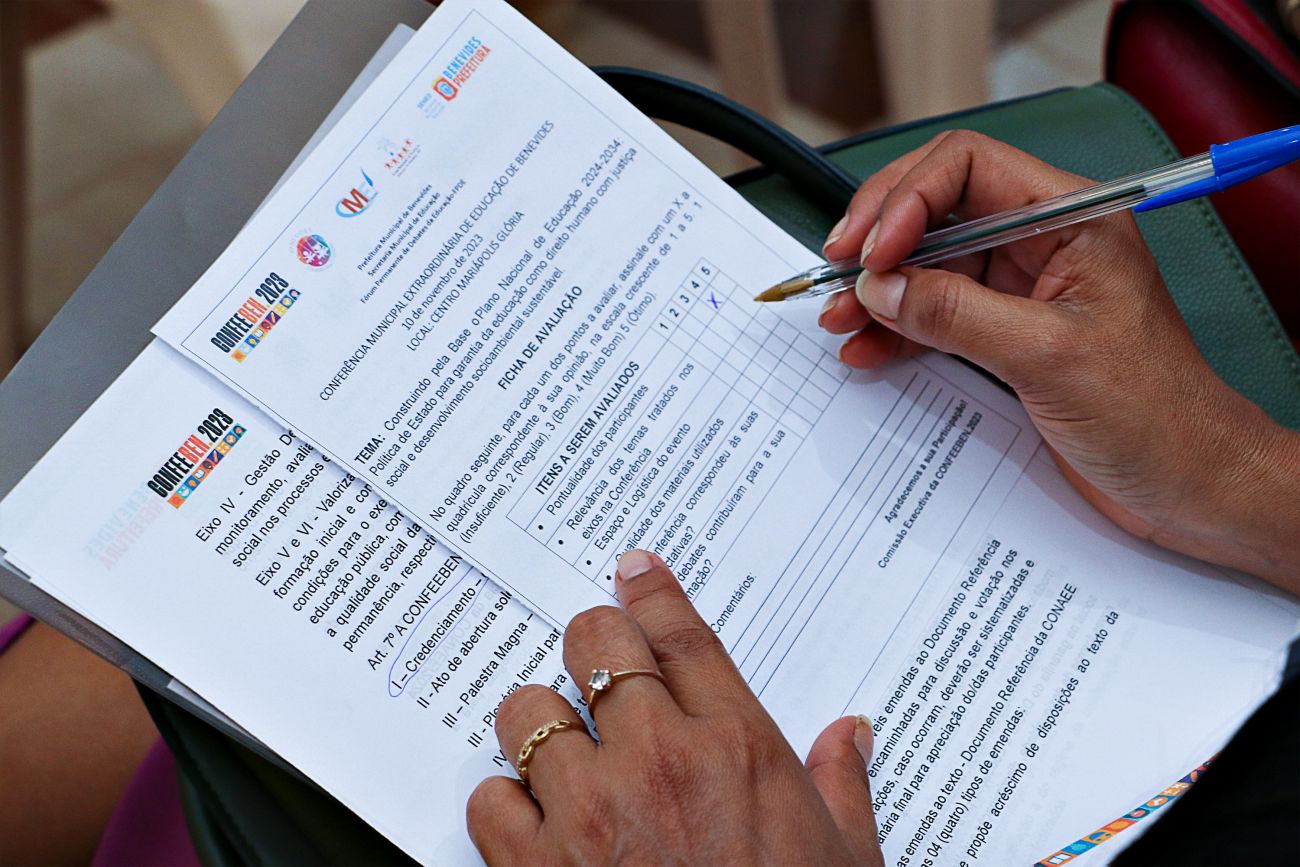 BENEVIDES
PREFEITURA
SEMED
CME
CONFEEBEN.2023
Prefeitura Municipal de Benevides
Secretaria Municipal de Educação
Fórum Permanente de Debates da Educação-FPDE
CONFERÊNCIA MUNICIPAL EXTRAORDINÁRIA DE EDUCAÇÃO DE BENEVIDES
10 de novembro de 2023
LOCAL: CENTRO MARIÁPOLIS GLÓRIA
TEMA: Construindo pela Base oPlano Nacional de Educação 2024-2034:
Política de Estado para garantia da educação como direito humano com justiça
social e desenvolvimento socioambiental sustentável.
FICHA DE AVALIAÇÃO
No quadro seguinte, para cada um dos pontos a avaliar, assinale com um X a
quadrícula correspondente à sua opinião, na escala crescente de 1 a 5. 1
(Insuficiente), 2 (Regular), 3 (Bom), 4 (Muito Bom) 5 (Ótimo).
ITENS A SEREM AVALIADOS 1 2 3 4 5
• Pontualidade dos participantes X
• Relevância dos temas tratados nos
eixos na Conferência
• Espaço e Logística do evento
• Qualidade dos materiais utilizados
nferência correspondeu às suas
tativas?
debates contribuíram para a sua
mação?
omentários:
Agradecemos a sua Participação!
Comissão Executiva da CONFEEBEN.2023
CONFEEBEN.2023
Eixo IV - Gestão De
monitoramento, avalia
social nos processos e
Eixo V e VI - Valoriza
formação inicial e co
condições para o exe
educação pública, con
a qualidade social da
permanência, respect
Art. 7º A CONFEEBEN
I – Credenciamento –
II - Ato de abertura sole
III – Palestra Magna –
III - Plenária Inicial par
IV
eis emendas ao Documento Referência
encaminhadas para discussão e votação nos
ações, caso ocorram, deverão ser sistematizadas e
enária final para apreciação do/das participantes.
as emendas ao texto - Documento Referência da CONAEE
os 04 (quatro) tipos de emendas:
e propõe acréscimo de disposições ao texto da